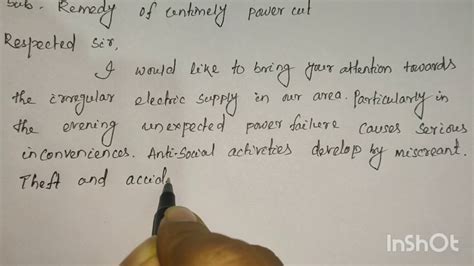 Sub. Remedy of untimely power cut
Respected Sir,
I would like to bring your attention towards
the irregular electric supply in our area. Particularly in
the evening unexpected power failure causes serious
inconveniences. Anti-Social activities develop by miscreant.
Theft and accid
InShOt